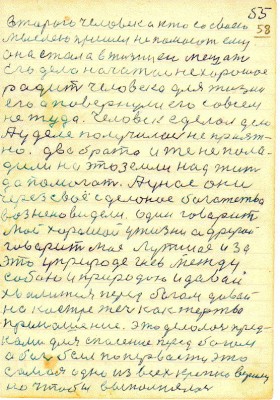 55
58
второго человека кто со своею
мыслею пришел не помогает ему
она стала в жизни мешать
Его дело начато нехорошое
радит человека для жизни
его а повернули его совсем
не туда. Человек сделал дело
А у деле получилось не прият-
но. два брата и те не пола-
дили на это земли над жит
да помогат. А у нас они
через своё сделоное богатство
возненовидели. один говарит
мой хороший у жизни а другой
говарит мое лутшое и за
это у природе гнев между
собою и природою и давай
хвалится перед богом давай
на костре жеч как жертво
приношение. Это делолся пред-
ками для спасение перед богом
а бог был по первасти это
самая одно из всех крепко верили
но чтобы выполнялся